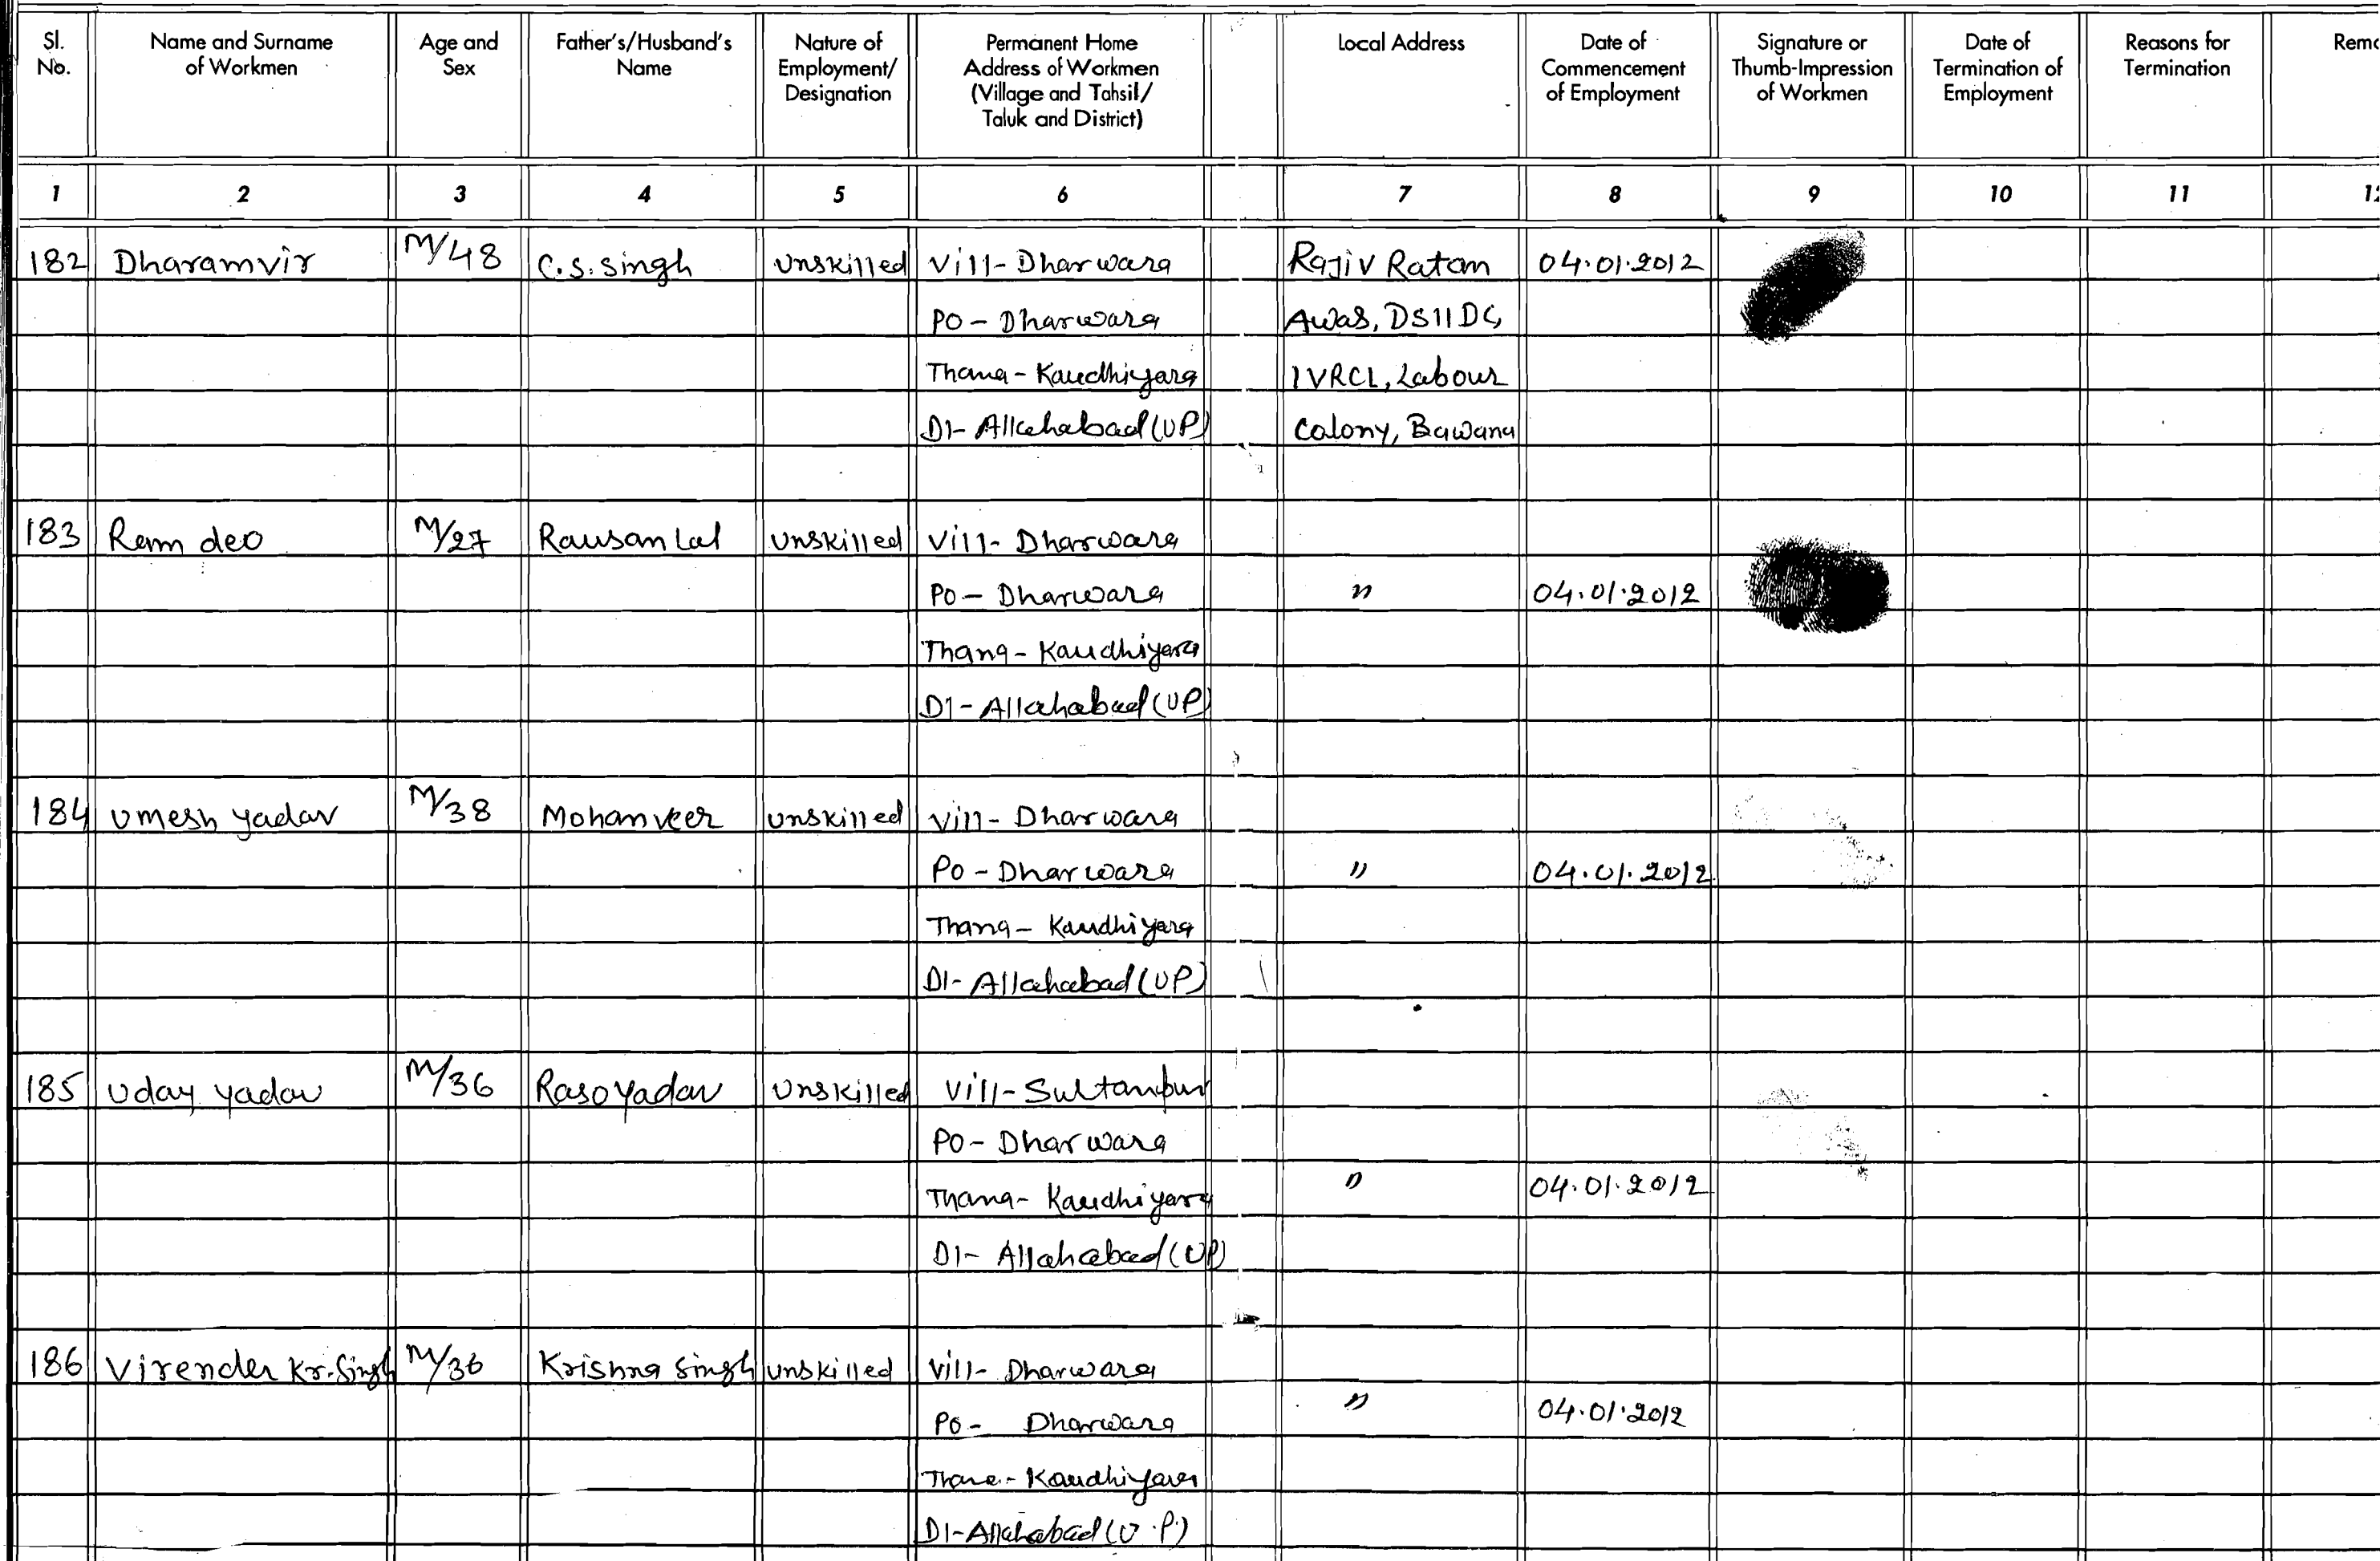 Sl. No. Name and Surname of Workmen Age and Sex Father's/Husband's Name Nature of Employment/ Designation Permanent Home Address of Workmen (Village and Tahsil/ Taluk and District) Local Address Date of Commencement of Employment Signature or Thumb-Impression of Workmen Date of Termination of Employment Reasons for Termination
1 2 3 4 5 6 7 8 9 10 11
182 Dharamvir M/48 C.S. Singh Unskilled Vill- Dharwara Rajiv Ratan 04.01.2012
PO - Dharwara Awas, DSIIDC,
Thana - Kaudhiyara IVRCL, Labour
DI- Allahabad (UP) Colony, Bawana
183 Ram deo M/27 Rausan Lal Unskilled Vill- Dharwara
PO - Dharwara " 04.01.2012
Thana - Kaudhiyara
DI - Allahabad (UP)
184 Umesh Yadav M/38 Mohanveer Unskilled Vill- Dharwara
PO - Dharwara " 04.01.2012
Thana - Kaudhiyara
DI- Allahabad (UP)
185 Uday Yadav M/36 Raso Yadav Unskilled Vill- Sultanpur
PO - Dharwara
Thana - Kaudhiyara " 04.01.2012
DI- Allahabad (UP)
186 Virender Kr. Singh M/36 Krishna Singh Unskilled Vill- Dharwara
PO - Dharwara " 04.01.2012
Thana - Kaudhiyara
DI- Allahabad (U.P)